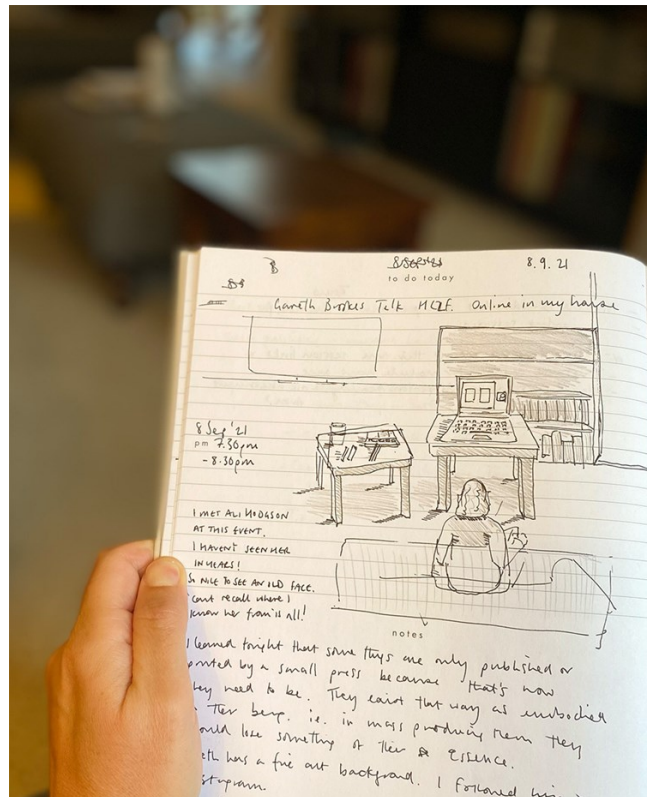 8 Sept 21
8.9.21
to do today
Gareth Brookes Talk MCZF. Online in my house
8 Sep '21
pm 7.30pm
- 8.30pm
I MET ALI HODGSON
AT THIS EVENT.
I HAVEN'T SEEN HER
IN YEARS!
SO NICE TO SEE AN OLD FACE.
cant recall where I
know her from is all!
notes
learned tonight that some things are only published or
printed by a small press because that's how
they need to be. They exist that way as embodied
in their being. i.e. in mass producing them they
would lose something of their essence.
has a fine art background. I followed